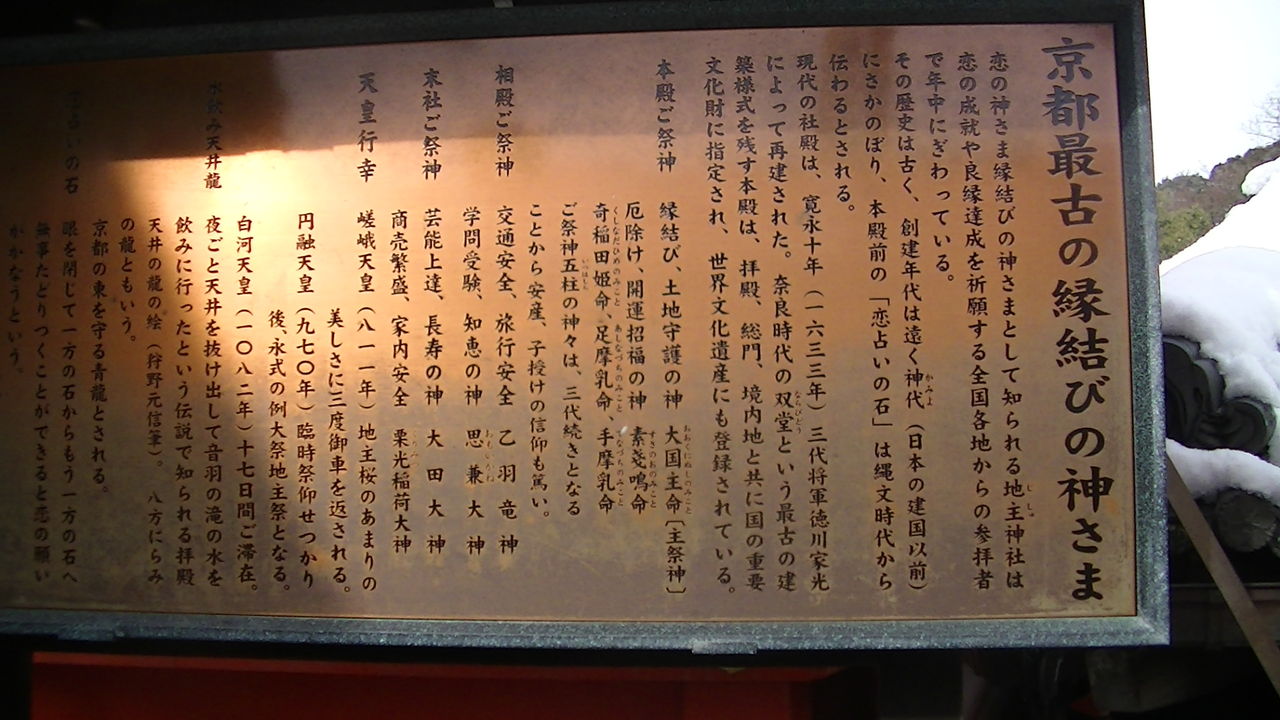 京都最古の縁結びの神さま
恋の神さま縁結びの神さまとして知られる地主神社は
恋の成就や良縁達成を祈願する全国各地からの参拝者
で年中にぎわっている。
その歴史は古く、創建年代は遠く神代（日本の建国以前）
にさかのぼり、本殿前の「恋占いの石」は縄文時代から
伝わるとされる。
現代の社殿は、寛永十年（一六三三年）三代将軍徳川家光
によって再建された。奈良時代の双堂という最古の建
築様式を残す本殿は、拝殿、総門、境内地と共に国の重要
文化財に指定され、世界文化遺産にも登録されている。
本殿ご祭神 縁結び、土地守護の神 大国主命〔主祭神〕
厄除け、開運招福の神 素戔嗚命
奇稲田姫命、足摩乳命、手摩乳命
ご祭神五柱の神々は、三代続きとなる
ことから安産、子授けの信仰も篤い。
相殿ご祭神 交通安全、旅行安全 乙羽竜神
学問受験、知恵の神 思兼大神
末社ご祭神 芸能上達、長寿の神 大田大神
商売繁盛、家内安全 栗光稲荷大神
天皇行幸 嵯峨天皇（八一一年）地主桜のあまりの
美しさに三度御車を返される。
円融天皇（九七〇年）臨時祭仰せつかり
後、永式の例大祭地主祭となる。
白河天皇（一〇八二年）十七日間ご滞在。
水飲み天井龍 夜ごと天井を抜け出して音羽の滝の水を
飲みに行ったという伝説で知られる拝殿
天井の龍の絵（狩野元信筆）。八方にらみ
の龍ともいう。
京都の東を守る青龍とされる。
占いの石 眼を閉じて一方の石からもう一方の石へ
無事たどりつくことができると恋の願い
がかなうという。